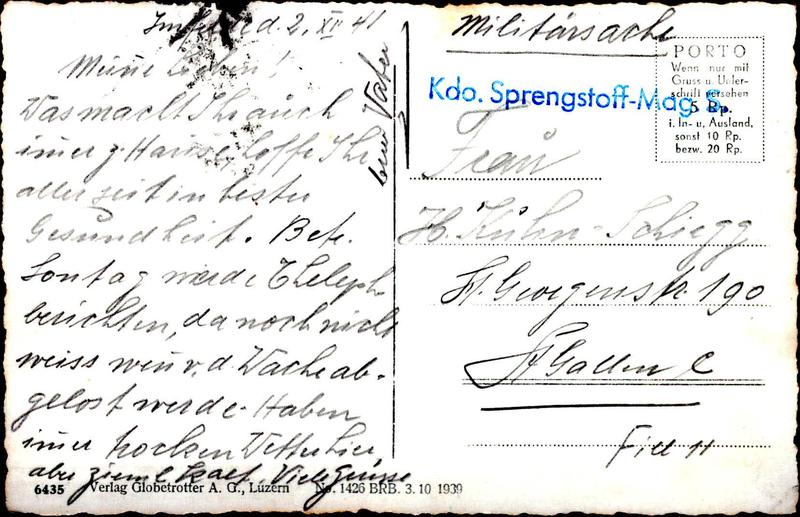 d. 2. XII 41
Meine Lieben!
Was macht Ihr auch
imer z. Hause, hoffe Ihr
alle seit in bester
Gesundheit. Betr.
Sontag werde Theleph.
berichten, da noch nicht
weiss wen v. d. Wache ab-
gelöst werde. Haben
imer trocken Wetter hier
aber zieml. kalt. Viele Grüsse
Vater
Militärsache
Kdo. Sprengstoff-Mag. S.
PORTO
Wenn nur mit
Gruss u. Unter-
schrift versehen
5 Rp.
i. In- u. Ausland,
sonst 10 Rp.
bezw. 20 Rp.
Frau
H. Kühn-Schiegg
St. Georgenstr. 190
St Gallen C
6435 Verlag Globetrotter A. G., Luzern No. 1426 BRB. 3. 10 1939